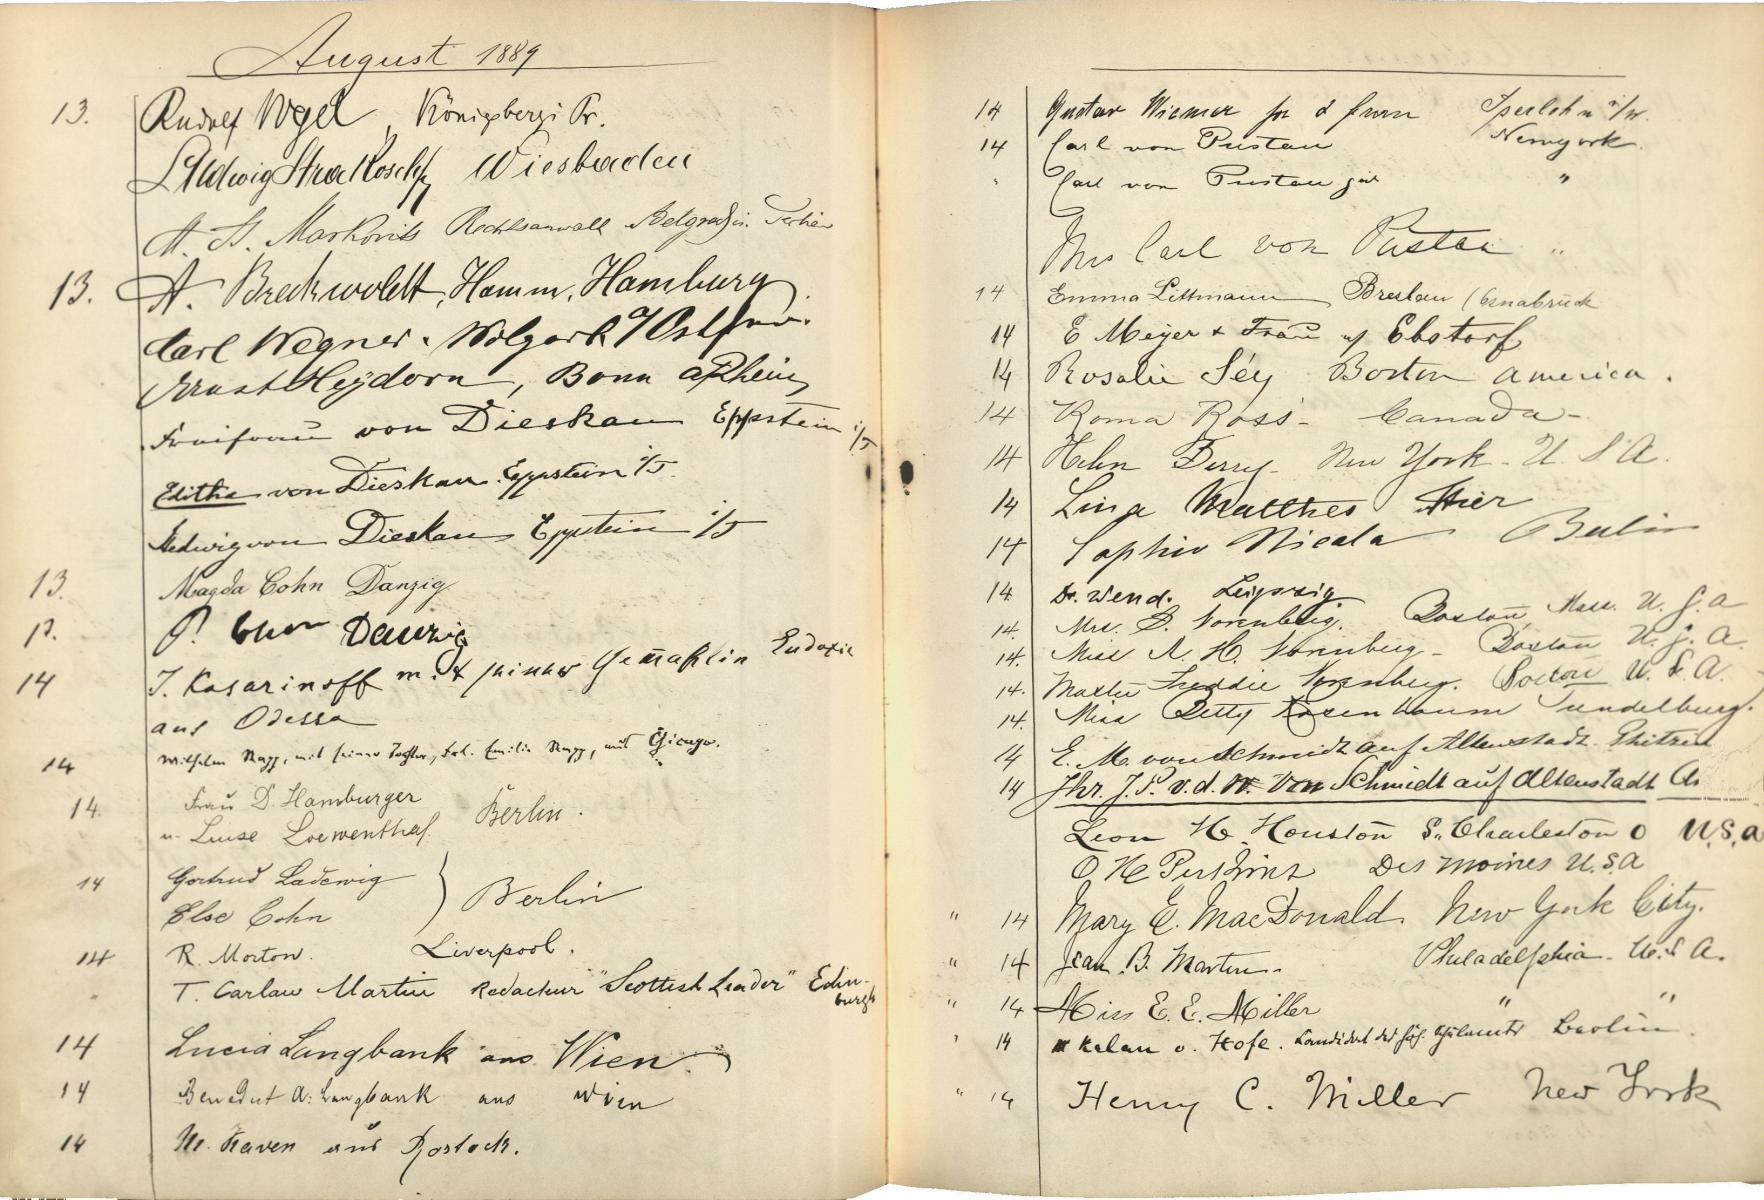 August 1889
13. Rudolf Vogel, Königsberg i Pr.
Ludwig Strakosch Wiesbaden
M. St. Markovits Rechtsanwalt Belgrad in Serbien
13. A. Breckwoldt, Hamm, Hamburg.
Carl Wegner. Wolgast
Ernst Heydorn, Bonn a/Rhein
Freifrau von Dieskau Eppstein i/T
Editha von Dieskau Eppstein i/T
Hedwig von Dieskau Eppstein i/T
13. Magda Cohn Danzig
13. P. Cohn Danzig
14 J. Kasarinoff m. seiner Gemahlin Eudoxie
aus Odessa
14 Wilhelm Rapp, mit seiner Tochter, Frl. Emilie Rapp, aus Chicago.
14. Frau D. Hamburger
u. Luise Loewenthal. Berlin.
14 Gertrud Ladewig
Else Cohn Berlin
14 R. Morton. Liverpool.
T. Carlaw Martin Redacteur "Scottish Leader" Edin-
burgh
14 Lucia Langbank aus Wien.
14 Benedict A. Langbank aus Wien
14 M. Raven aus Rostock.
14 Gustav Wiemer jr & Frau Iserlohn i/W.
14 Carl von Pustau Newyork.
" Carl von Pustau jr "
Mrs Carl von Pustau "
14 Emma Littmann Breslau / Osnabrück
14 E Meyer + Frau Ebstorf
14 Rosalie Séy Boston America.
14 Roma Ross - Canada -
14 Helen Berry - New York - U. S A.
14 Lina Matthes Trier
14 Sophie Nicola Berlin
14 Dr. Wend. Leipzig
14. Mrs. S. Vorenberg. Boston, Mass. U. S. A
14. Miss R. H. Vorenberg - Boston U. S. A.
14. Master Freddie Vorenberg. Boston U. S. A.
14. Miss Betty Rosenbaum
14 E. M. von Schmidt auf Altenstadt.
14 Jhr. J. P. v. d. W. Von Schmidt auf Altenstadt
Leon H. Houston S. Charleston O U.S.A
O H Perkins Des Moines U.S.A
" 14 Mary E. MacDonald. New York City.
" 14 Jean. B. Martin. Philadelphia. U. S A.
" 14 Miss E. E. Miller " "
" 14 v. Hofe. Kandidat des höh. Schulamts Berlin.
" 14 Henry C. Miller New York